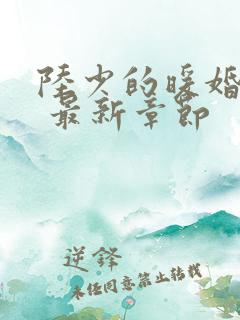 陆少的暖婚
最新章节
逆锋
未经同意禁止转载